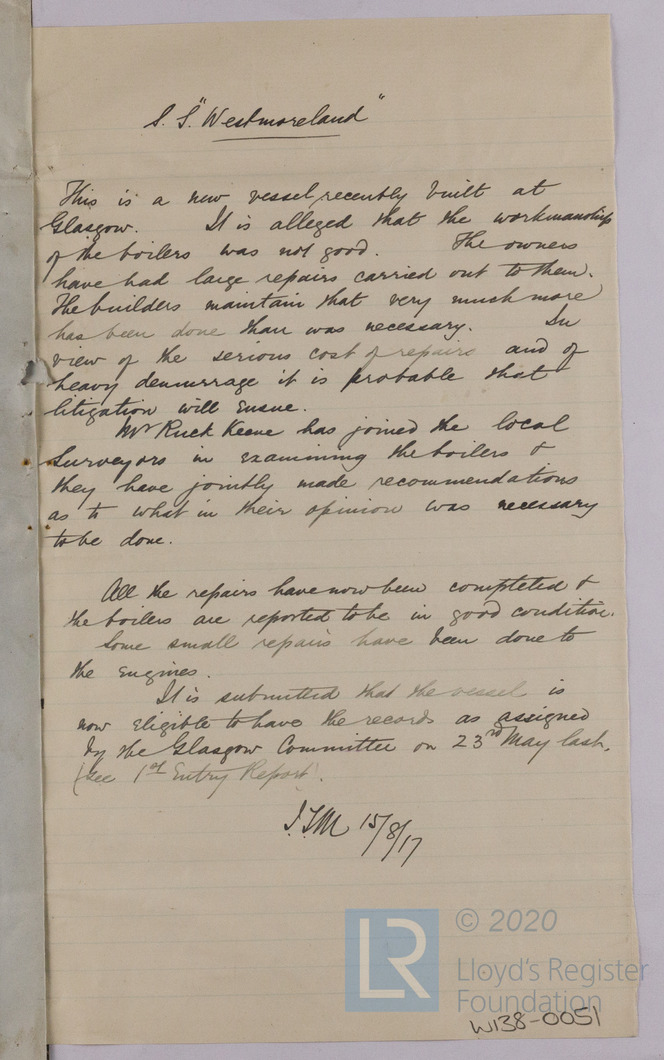 S. S. "Westmoreland"
This is a new vessel recently built at
Glasgow. It is alleged that the workmanship
of the boilers was not good. The owners
have had large repairs carried out to them.
The builders maintain that very much more
has been done than was necessary. In
view of the serious cost of repairs and of
heavy demurrage it is probable that
litigation will ensue.
Mr Ruck Keene has joined the local
Surveyors in examining the boilers &
they have jointly made recommendations
as to what in their opinion was necessary
to be done.
All the repairs have now been completed &
the boilers are reported to be in good condition.
Some small repairs have been done to
the engines.
It is submitted that the vessel is
now eligible to have the records as assigned
by the Glasgow Committee on 23rd May last.
(see 1st Entry Report).
15/8/17
LR
© 2020
Lloyd's Register
Foundation
W138-0051